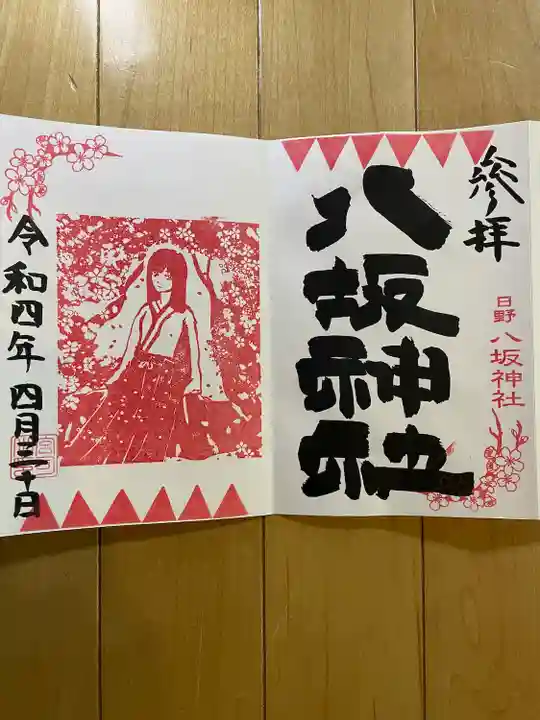 參拝
日野 八坂神社
八坂神社
令和四年 四月三十日